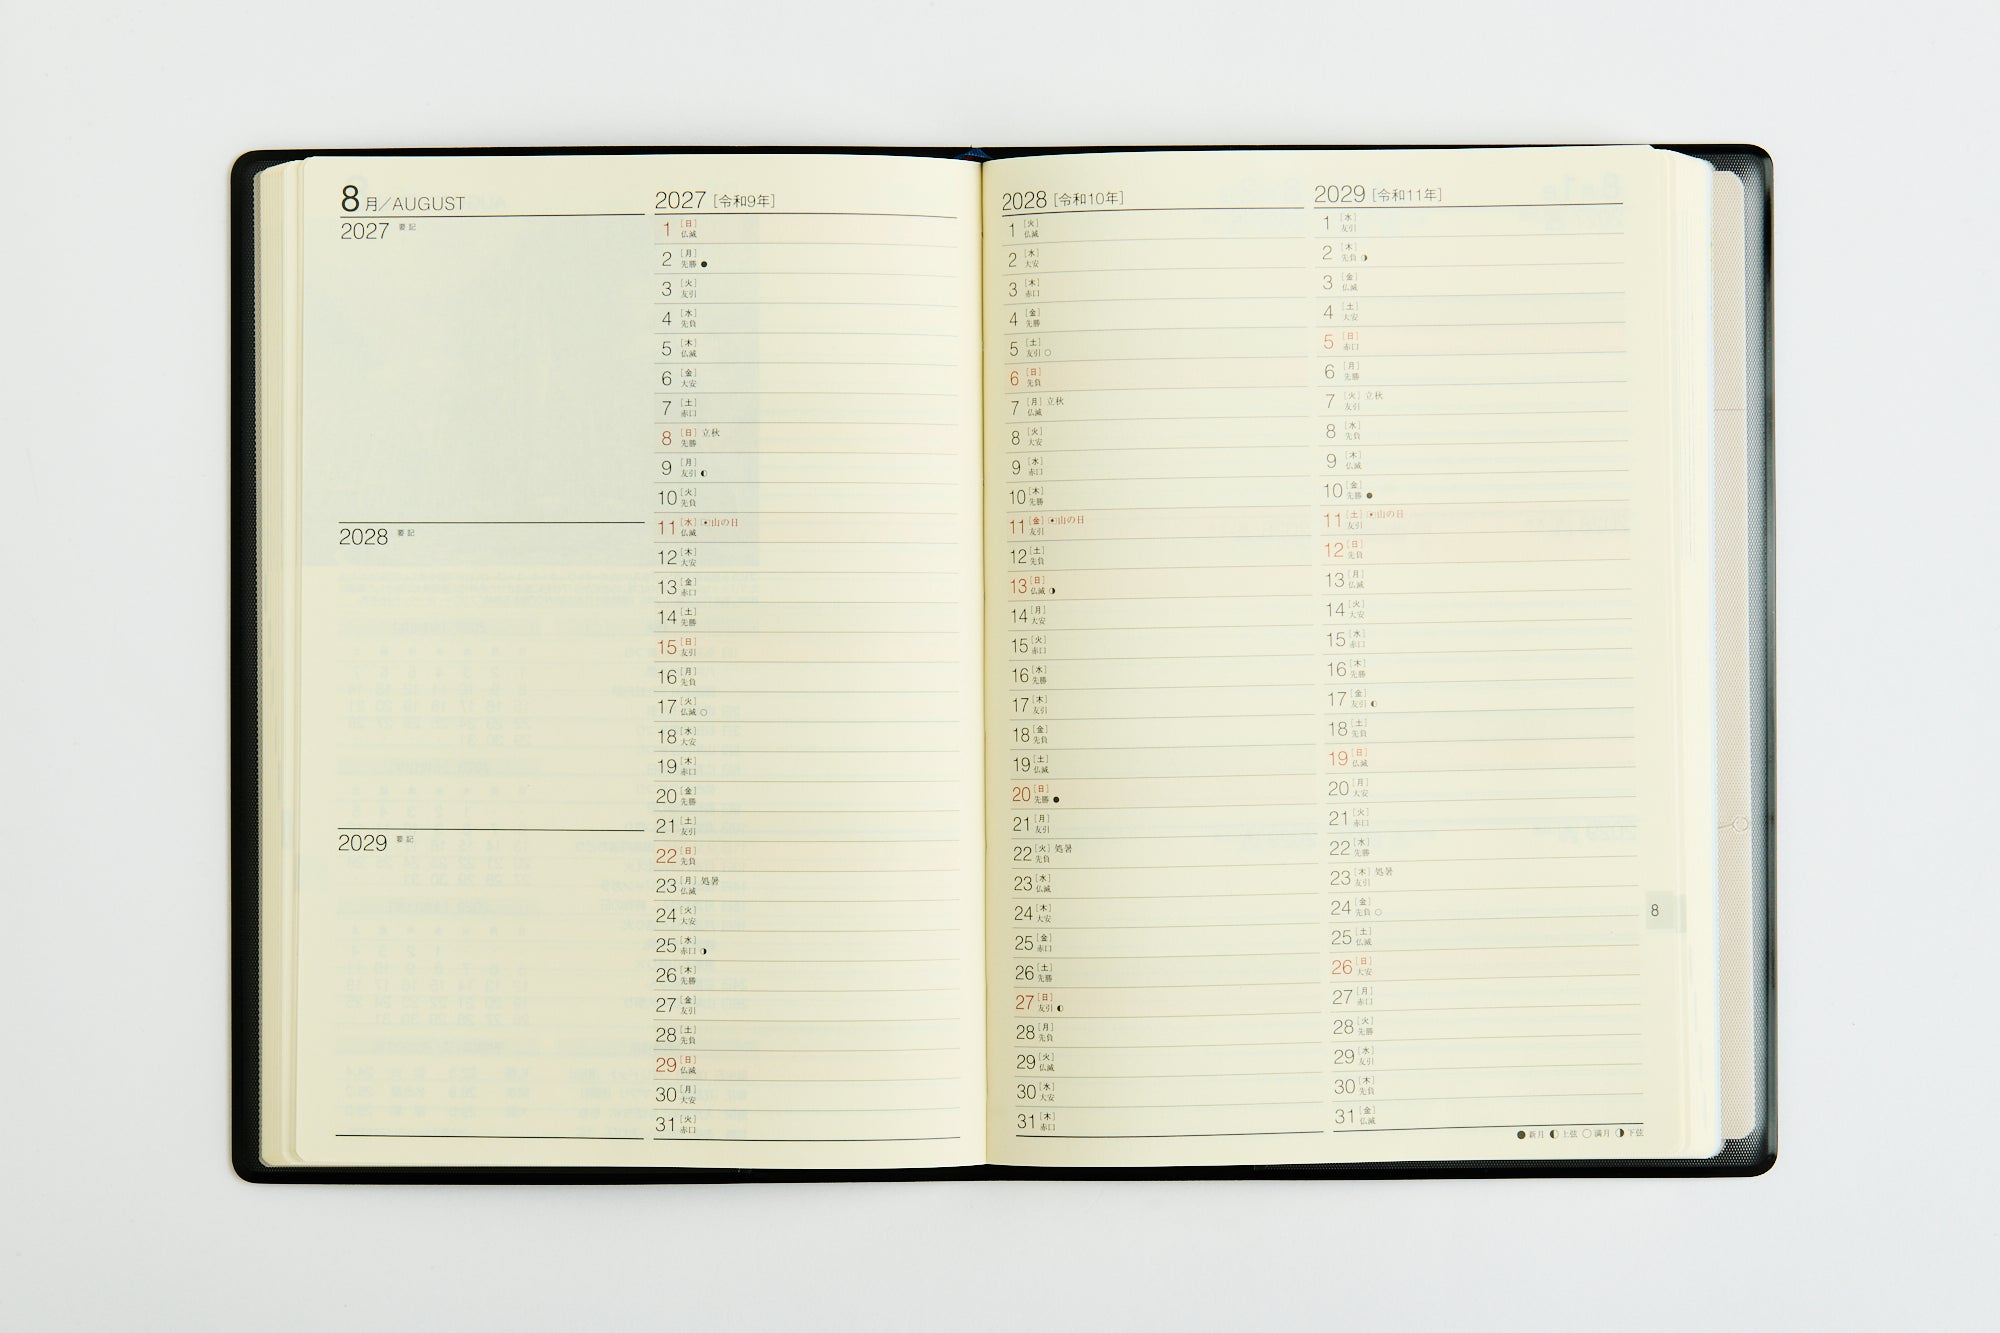 8月/AUGUST
2027 要記
2028 要記
2029 要記
2027 [令和9年]
1 [日]
仏滅
2 [月]
先勝 ●
3 [火]
友引
4 [水]
先負
5 [木]
仏滅
6 [金]
大安
7 [土]
赤口
8 [日] 立秋
先勝
9 [月]
友引 ◐
10 [火]
先負
11 [水] 山の日
仏滅
12 [木]
大安
13 [金]
赤口
14 [土]
先勝
15 [日]
友引
16 [月]
先負
17 [火]
仏滅 ○
18 [水]
大安
19 [木]
赤口
20 [金]
先勝
21 [土]
友引
22 [日]
先負
23 [月] 処暑
仏滅
24 [火]
大安
25 [水]
赤口 ◑
26 [木]
先勝
27 [金]
友引
28 [土]
先負
29 [日]
仏滅
30 [月]
大安
31 [火]
赤口
2028 [令和10年]
1 [火]
仏滅
2 [水]
大安
3 [木]
赤口
4 [金]
先勝
5 [土]
友引 ○
6 [日]
先負
7 [月] 立秋
仏滅
8 [火]
大安
9 [水]
赤口
10 [木]
先勝
11 [金] 山の日
友引
12 [土]
先負
13 [日]
仏滅 ◑
14 [月]
大安
15 [火]
赤口
16 [水]
先勝
17 [木]
友引
18 [金]
先負
19 [土]
仏滅
20 [日]
先勝 ●
21 [月]
友引
22 [火] 処暑
先負
23 [水]
仏滅
24 [木]
大安
25 [金]
赤口
26 [土]
先勝
27 [日]
友引 ◐
28 [月]
先負
29 [火]
仏滅
30 [水]
大安
31 [木]
赤口
2029 [令和11年]
1 [水]
友引
2 [木]
先負 ◑
3 [金]
仏滅
4 [土]
大安
5 [日]
赤口
6 [月]
先勝
7 [火] 立秋
友引
8 [水]
先負
9 [木]
仏滅
10 [金]
先勝 ●
11 [土] 山の日
友引
12 [日]
先負
13 [月]
仏滅
14 [火]
大安
15 [水]
赤口
16 [木]
先勝
17 [金]
友引 ◐
18 [土]
先負
19 [日]
仏滅
20 [月]
大安
21 [火]
赤口
22 [水]
先勝
23 [木] 処暑
友引
24 [金]
先負 ○
25 [土]
仏滅
26 [日]
大安
27 [月]
赤口
28 [火]
先勝
29 [水]
友引
30 [木]
先負
31 [金]
仏滅
●新月 ◐上弦 ○満月 ◑下弦
8